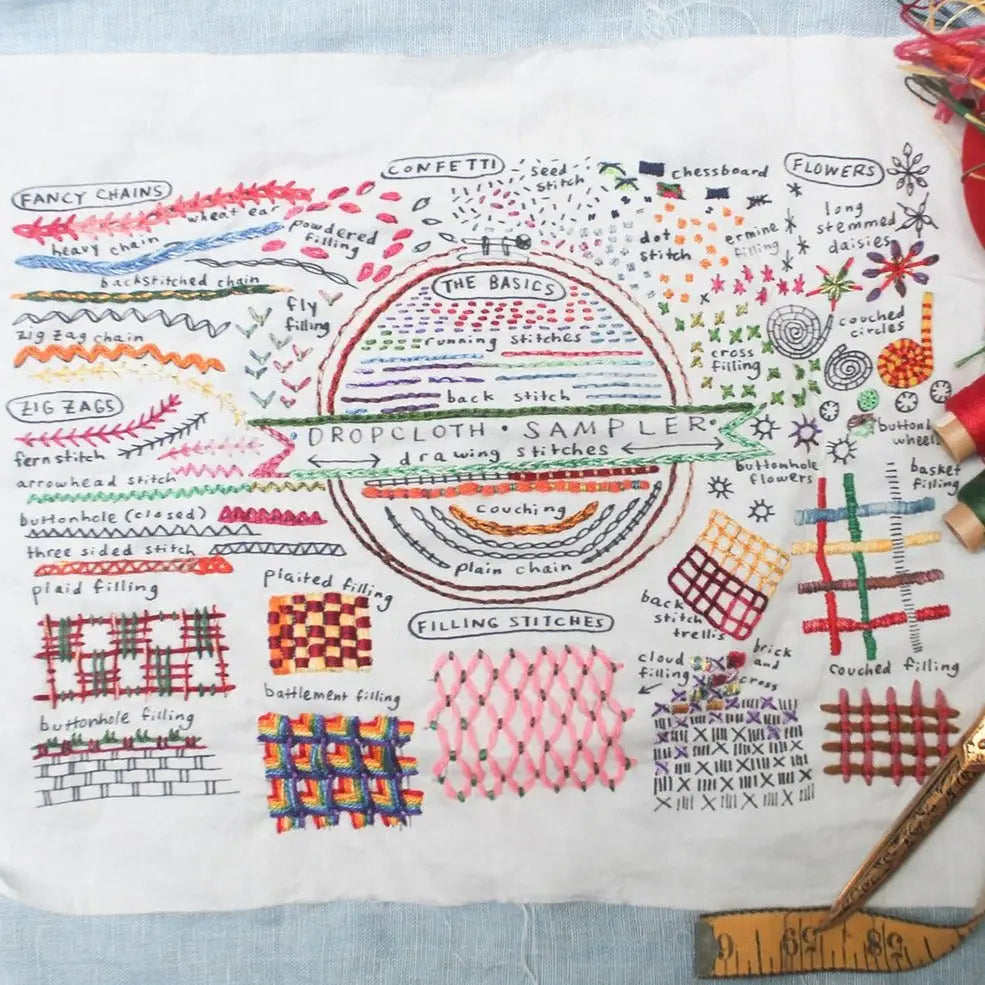 FANCY CHAINS
wheat ear
heavy chain
powdered
filling
backstitched chain
fly
filling
zig zag chain
ZIG ZAGS
fern stitch
arrowhead stitch
buttonhole (closed)
three sided stitch
CONFETTI
seed
stitch
chessboard
dot
stitch
ermine
filling
cross
filling
FLOWERS
long
stemmed
daisies
couched
circles
buttonh
wheels
buttonhole
flowers
THE BASICS
running stitches
back stitch
DROPCLOTH · SAMPLER
drawing stitches
couching
plain chain
FILLING STITCHES
plaid filling
plaited filling
buttonhole filling
battlement filling
cloud
filling
brick
and
cross
back
stitch
trellis
basket
filling
couched filling
6 59 85